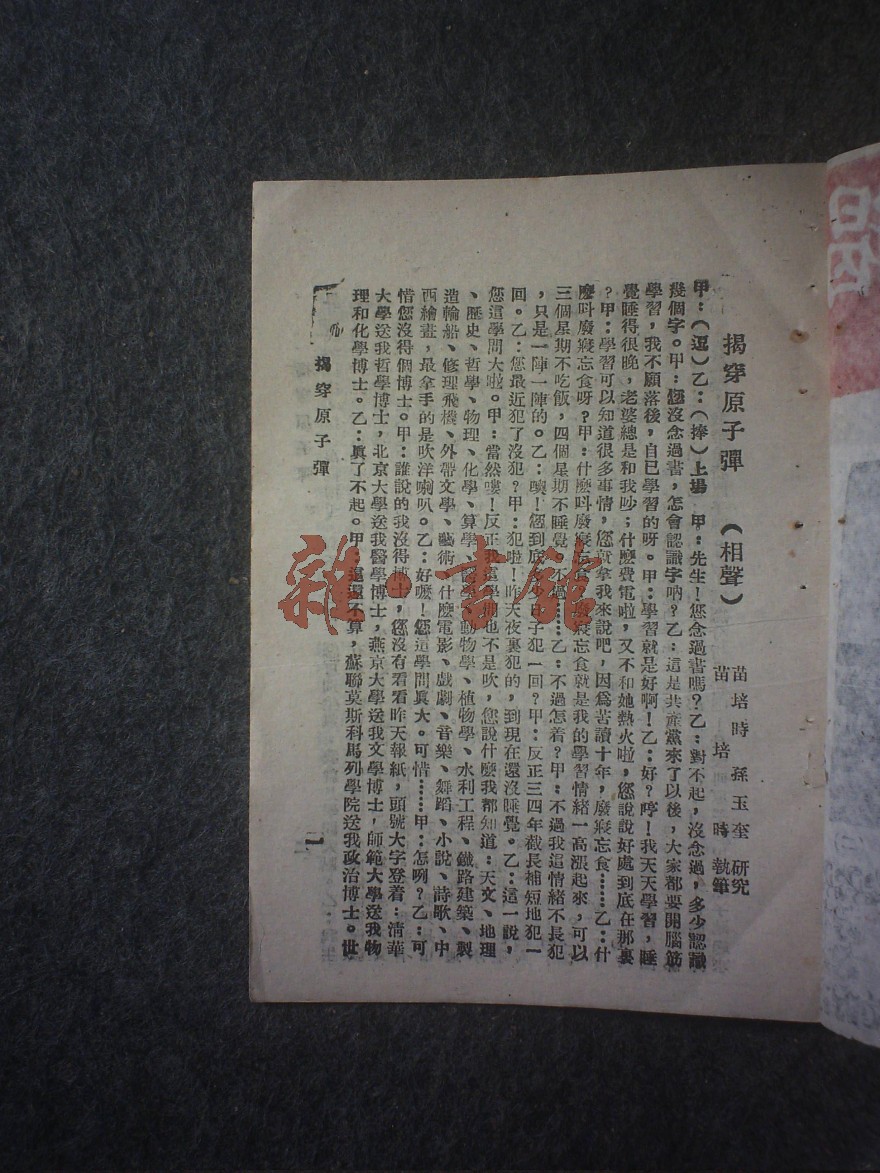 揭穿原子彈　（相聲）
苗培時　孫玉奎　研究
苗　培　時　執筆
甲：（逗）乙：（捧）上場　甲：先生！您念過書嗎？乙：對不起，沒念過，多少認識
幾個字。甲：您沒念過書，怎會認識字吶？乙：這是共產黨來了以後，大家都要開腦筋
學習，我不願落後，自己學習的呀。甲：學習就是好啊！乙：好？哼！我天天學習，睡
覺睡得很晚，老婆總是和我吵；什麼費電啦，又不和她熱火啦，您說說好處到底在那裏
？甲：學習可以知道很多事情，您就拿我來說吧，因為苦讀十年，廢寢忘食……乙：什
麼叫廢寢忘食呀？甲：什麼叫廢寢忘食？廢寢忘食就是我的學習情緒一高漲起來，可以
三個星期不吃飯，四個星期不睡覺，不過……乙：不過怎着？甲：不過我這情緒不長犯
，只是一陣一陣的。乙：噢！您到底多少日子犯一回？甲：反正三四年截長補短地犯一
回。乙：您最近犯了沒犯？甲：犯啦！昨天夜裏犯的，到現在還沒睡覺。乙：這一說，
您這學問大啦。甲：當然嘍！反正我這學問也不是吹，您說什麼我都知道：天文、地理
、歷史、哲學、物理、化學、算學、醫學、動物學、植物學、水利工程、鐵路建築、製
造輪船、修理飛機、外帶文學、藝術、什麼電影、戲劇、音樂、舞蹈、小說、詩歌、中
西繪畫，最拿手的是吹洋喇叭。乙：好嚒！您這學問真大。可惜……甲：怎咧？乙：可
惜您沒得個博士。甲：誰說的我沒得博士，您沒有看看昨天報紙，頭號大字登着：清華
大學送我哲學博士，北京大學送我醫學博士，燕京大學送我文學博士，師範大學送我物
理和化學博士。乙：真了不起。甲：這還不算，蘇聯莫斯科馬列學院送我政治博士。世
揭穿原子彈
1
雜·書館